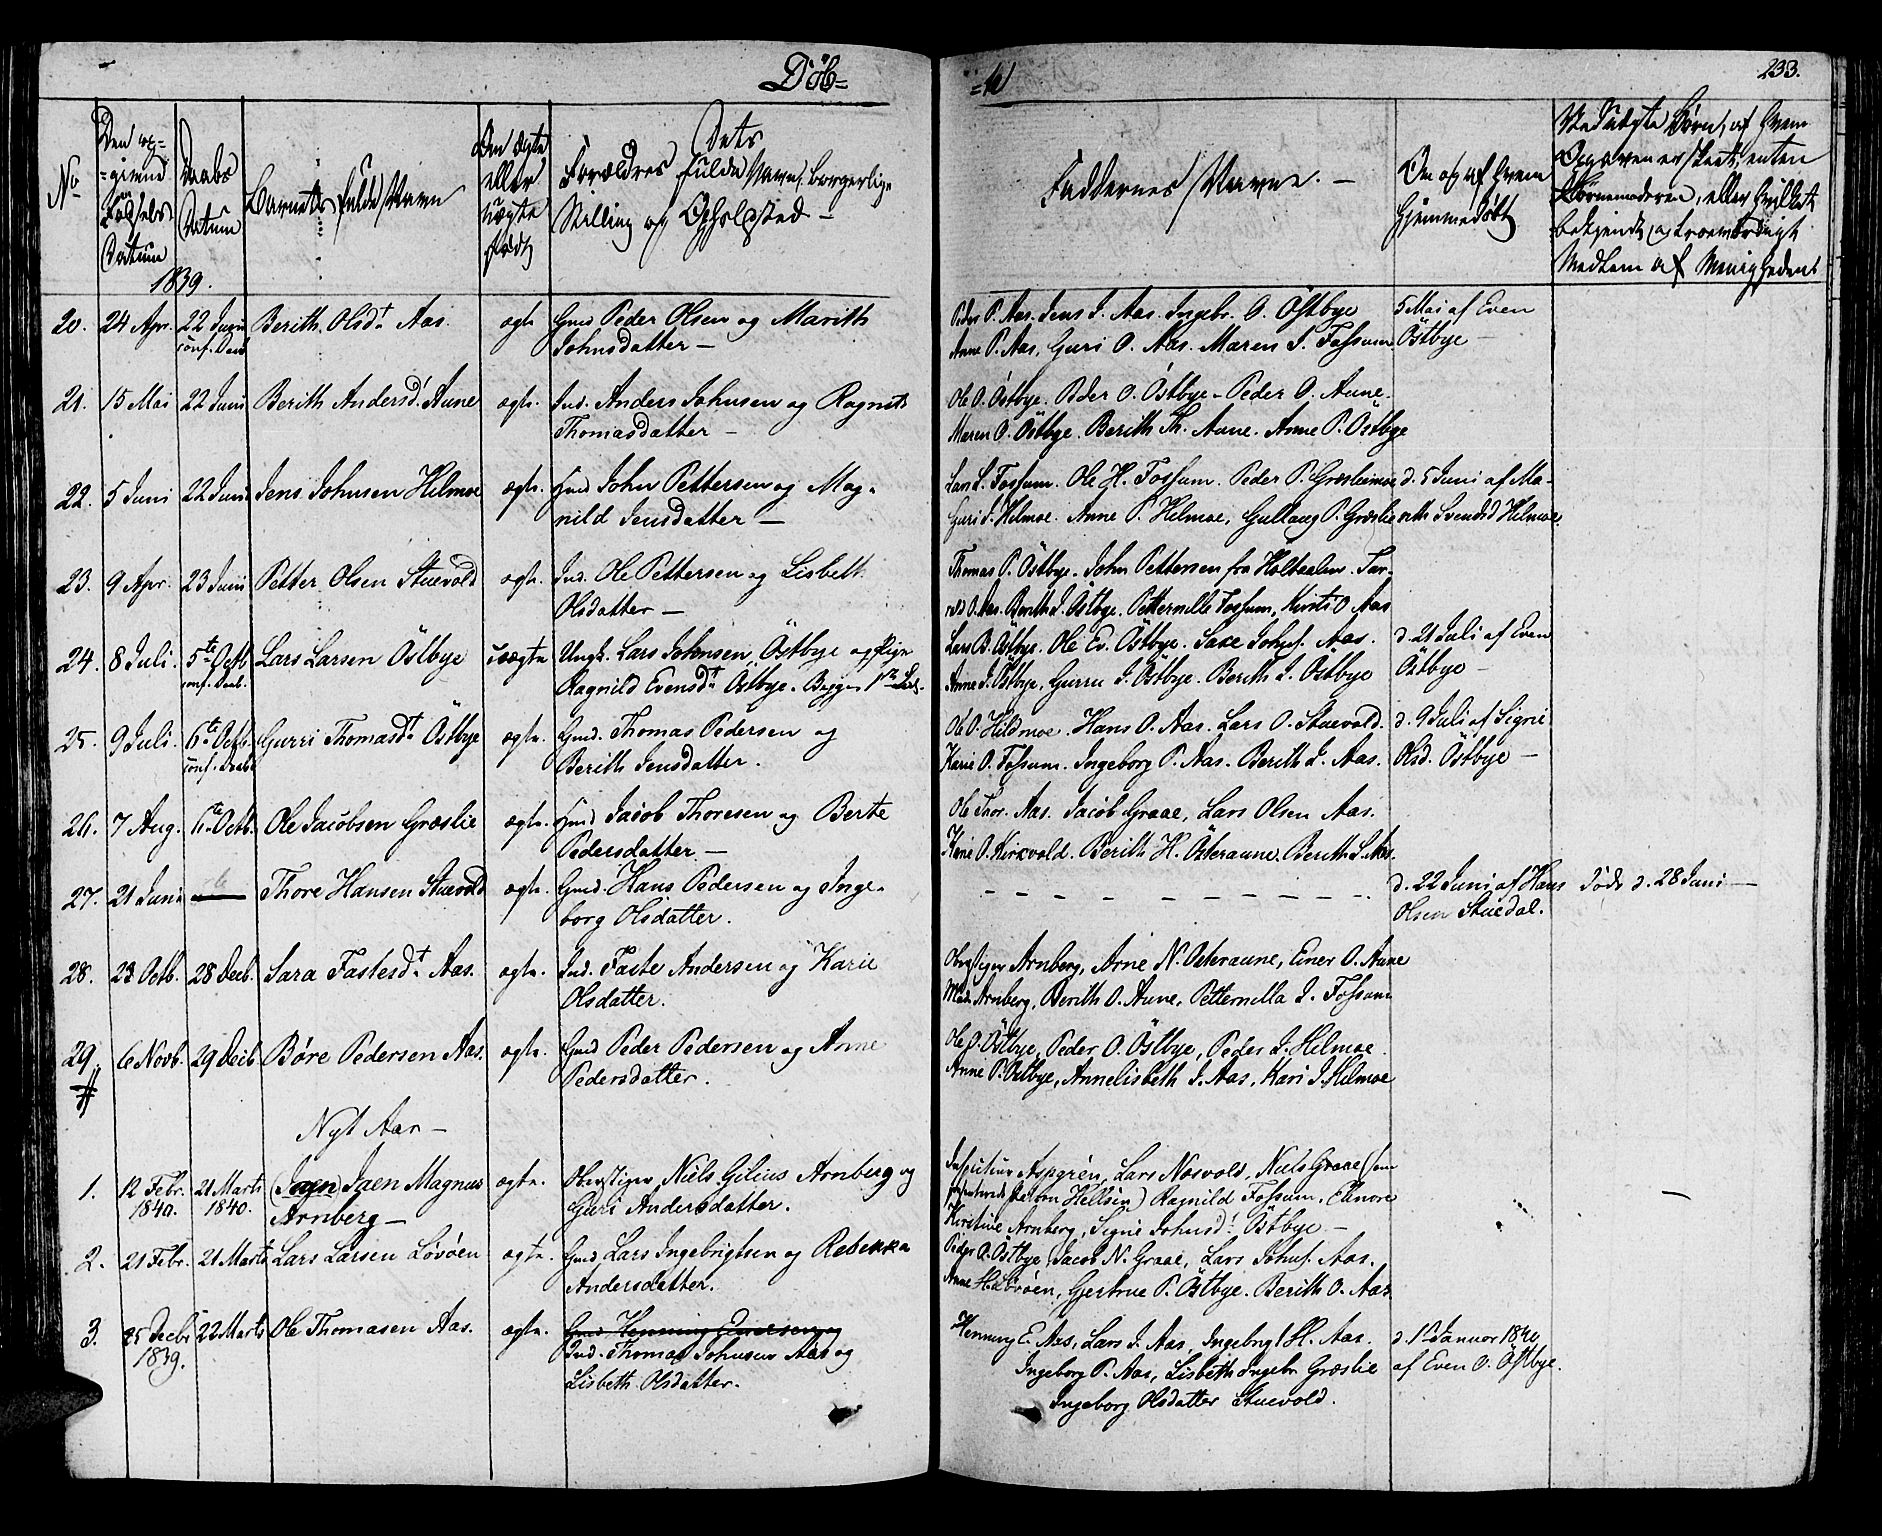 Döb=
=te
233.
No
Den op=
=givne
Födsels
Datum
Daabs
Datum
Barnets fulde Navn
Om ægte
eller
uægte
født
Dets
Forældres fulde Navne, borgerlige
Stilling og Opholdssted –
Faddernes Navne. –
Om og af hvem
hjemmedøbt
Ved uægte Børn, af hvem
Opgaven er skeet, enten
Barnemoderen, eller hvilket
bekjendt og troeværdigt
Medlem af Menigheden
1839.
20. 24 Apr. 22 Juni Berith Olsdt Aas. ægte Gmd Peder Olsen og Marith Peder P. Aas. Jens J. Aas. Ingebr. O. Östbye 5 Mai af Even
conf. Daab Johnsdatter – Anne P. Aas, Guri O. Aas. Maren J. Fossum Östbye –
21. 15 Mai 22 Juni Berith Andersd. Aune ægte. Ind. Anders Johnsen og Ragnild Ole O. Östbye. Peder O. Östbye – Peder O. Aune.
Thomasdatter – Maren O. Östbye. Berith Th. Aune. Anne P. Östbye
22. 5 Juni 22 Juni Jens Johnsen Hilmoe ægte. Gmd John Pettersen og Mag- Lars L. Fossum. Ole H. Fossum. Peder P. Græsliemoe d. 5 Juni af Ma-
nild Jensdatter – Guri J. Hilmoe. Anne P. Hilmoe, Gullaug P. Græslie rith Svendsd Hilmoe.
23. 9 Apr. 23 Juni Petter Olsen Stuevold ægte. Ind. Ole Pettersen og Lisbeth Thomas P. Östbye. John Pettersen fra Holtaalen. Tar-
Olsdatter – Aas. Berith J. Östbye. Petternille Fossum, Kirsti O Aas
24. 8 Juli. 5te Octb Lars Larsen Östbye uægte Ungk. Lars Johnsen Östbye og Pige Lars B. Östbye. Ole Ev. Östbye. Johns. Aas. d. 21 Juli af Even
conf. Daab. Ragnild Evensdt Östbye. Begges 1ste Anne J. Östbye, Gurru J. Östbye. Berith J. Östbye Östbye –
25. 9 Juli. 6te Octb. Gurri Thomasdt Östbye ægte. Gmd. Thomas Pedersen og Ole O. Hildmoe. Hans O. Aas. Lars O. Stuevold. d. 9 Juli af Signe
conf. Daab Berith Jensdatter. Karie O. Fossum. Ingeborg P. Aas. Berith L. Aas. Olsd. Östbye –
26. 7 Aug. 6te Octb. Ole Jacobsen Græslie ægte. Gmd Jacob Thoresen og Berte Ole Thor. Aas. Jacob Graae, Lars Olsen Aas.
Pedersdatter – Karie O. Kirkvold. Berith H. Österaune. Berith L. Aas.
27. 21 Juni – Thore Hansen Stuevold ægte. Gmd. Hans Pedersen og Inge- – – – – – – – – – – d. 22 Juni af Hans Døde d. 28 Juni –
borg Olsdatter. Olsen Stuedal.
28. 23 Octb. 28 Decb. Sara Fastesdt Aas. ægte. Ind. Faste Andersen og Karie Oberstiger Arnberg, Arne N. Österaune, Einer O. Aune
Olsdatter. Mad. Arnberg, Berith O. Aune, Petternilla J. Fossum
29. 6 Novb. 29 Decb. Böre Pedersen Aas. ægte. Gmd Peder Pedersen og Anne Ole O. Östbye, Peder O. Östbye, Peder J. Hilmoe.
# Pedersdatter. Anne P. Östbye, Annelisbeth J. Aas, Kari J. Hilmoe
Nyt Aar –
1. 12 Febr. 21 Marts (Joen) Jaen Magnus ægte. Oberstiger Niels Gilius Arnberg og Aspgrén, Lars Nosvold, Niels Graae (som
1840. 1840. Arnberg – Guri Andersdatter. Hellsén) Ragnild Fossum, Elenore
Kirstine Arnberg, Signe Johnsd. Östbye. –
2. 21 Febr. 21 Marts Lars Larsen Lövöen ægte. Gmd Lars Ingebrigtsen og Rebekka Peder O. Östbye Jacob N. Graae, Lars Johns. Aas.
Andersdatter. Anne H. Lövöen, Gjertrue P. Östbye. Berith O. Aas
3. 25 Decbr 22 Marts Ole Thomasen Aas. ægte. Gmd Henning Einersen og Henning E. Aas, Lars J. Aas, Ingebrigt H. Aas. d. 1 Januar 1840
1839. Ind. Thomas Johnsen Aas og Ingeborg P. Aas, Lisbeth Ingebr Græslie af Even O. Östbye.
Lisbeth Olsdatter. Ingeborg Olsdatter Stuevold.